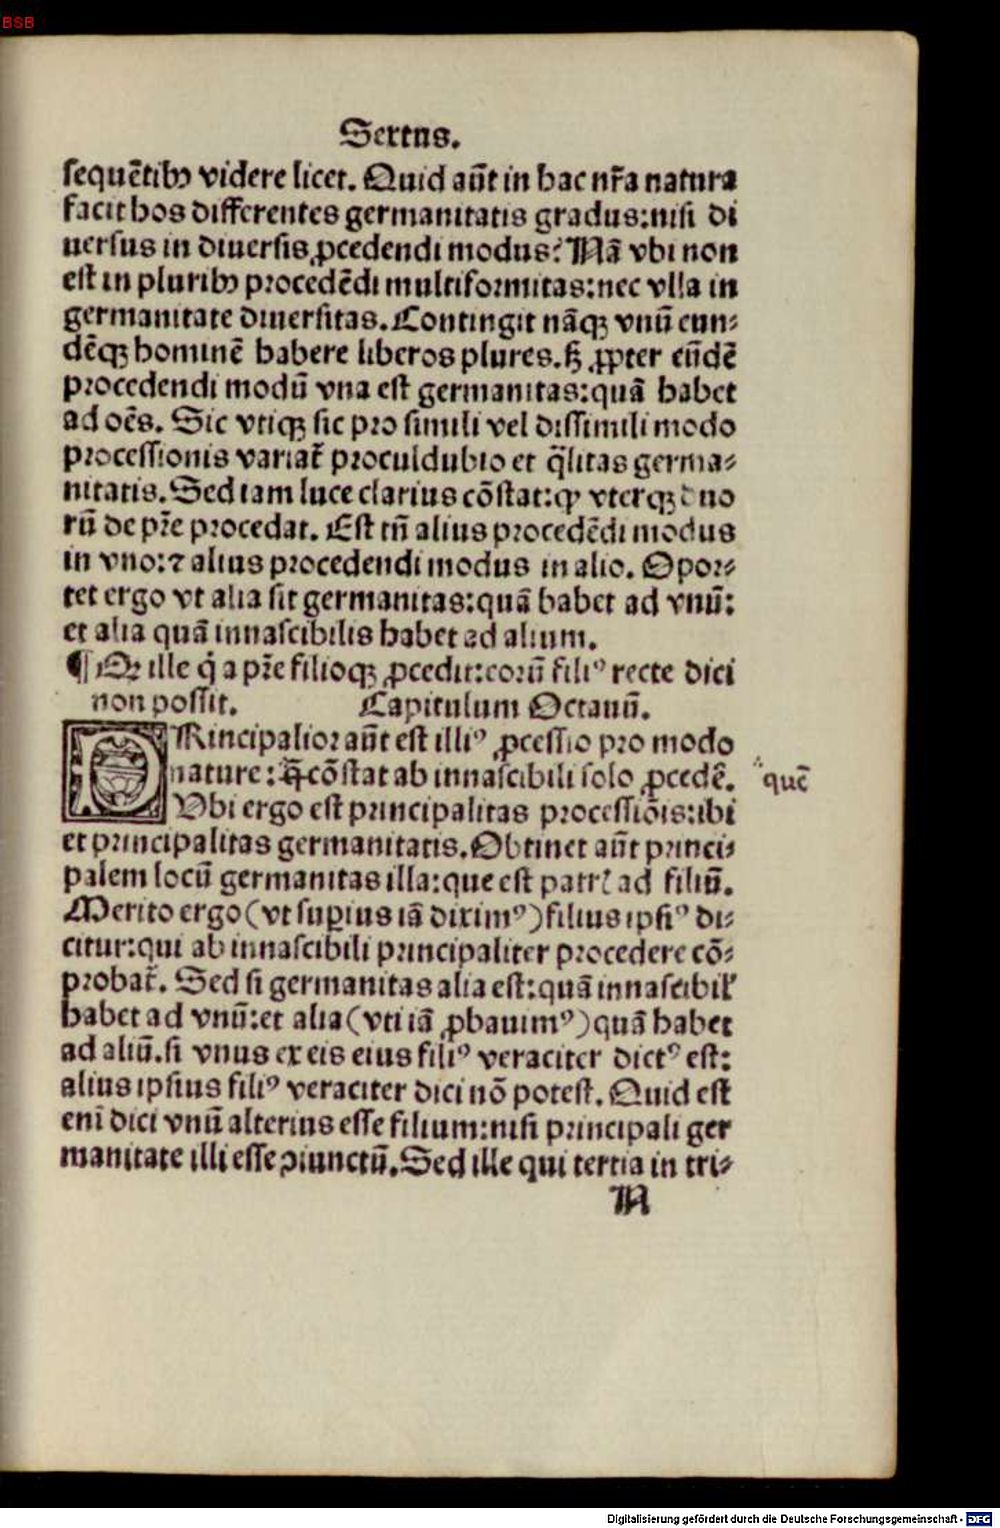 BSB
Sextus.
sequētibꝰ videre licet. Quid aūt in hac nr̄a natura
facit hos differentes germanitatis gradus:nisi di
uersus in diuersis ꝓcedendi modus? Nā vbi non
est in pluribꝰ procedēdi multiformitas:nec vlla in
germanitate diuersitas. Contingit nāqꝫ vnū eun⸗
dēqꝫ hominē habere liberos plures. sꝫ ꝓpter eūdē
procedendi modū vna est germanitas:quā habet
ad oēs. Sic vtiqꝫ sic pro simili vel dissimili modo
processionis variat̄ proculdubio et q̄litas germa⸗
nitatis. Sed iam luce clarius cōstat:ꝙ vterqꝫ duo
rū de pr̄e procedat. Est tn̄ alius procedēdi modus
in vno:⁊ alius procedendi modus in alio. Opor⸗
tet ergo vt alia sit germanitas:quā habet ad vnū:
et alia quā innascibilis habet ad alium.
¶ Qꝛ ille q̇ a pr̄e filioqꝫ ꝓcedit:eorū filiꝰ recte dici
non possit. Capitulum Octauū.
PRincipalior aūt est illiꝰ ꝓcessio pro modo
nature: quā cōstat ab innascibili solo ꝓcedē. quē
Vbi ergo est principalitas processiōis:ibi
et principalitas germanitatis. Obtinet aūt princi⸗
palem locū germanitas illa:que est patrꝭ ad filiū.
Merito ergo (vt suꝑius iā diximꝰ) filius ipsiꝰ di⸗
citur:qui ab innascibili principaliter procedere cō⸗
probat̄. Sed si germanitas alia est:quā innascibilꝭ
habet ad vnū:et alia (vti iā ꝓbauimꝰ) quā habet
ad aliū. si vnus ex eis eius filiꝰ veraciter dictꝰ est:
alius ipsius filiꝰ veraciter dici nō potest. Quid est
eni dici vnū alterius esse filium:nisi principali ger
manitate illi esse ↄiunctū. Sed ille qui tertia in tri⸗
N
Digitalisierung gefördert durch die Deutsche Forschungsgemeinschaft - DFG